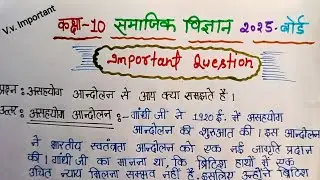 V.v. Important
कक्षा-10 समाजिक विज्ञान 2025-बोर्ड
Important Question
प्रश्न:- असहयोग आन्दोलन से आप क्या समझते हैं।
उत्तर:- असहयोग आन्दोलन:- गाँधी जी ने 1920 ई. में असहयोग
आन्दोलन की शुरुआत की। इस आन्दोलन
ने भारतीय स्वतंत्रता आन्दोलन को एक नई जागृति प्रदान
की। गाँधी जी का मानना था, कि ब्रिटिश हाथों में एक
उचित न्याय मिलना सम्भव नहीं है। इसलिए उन्होंने ब्रिटिश